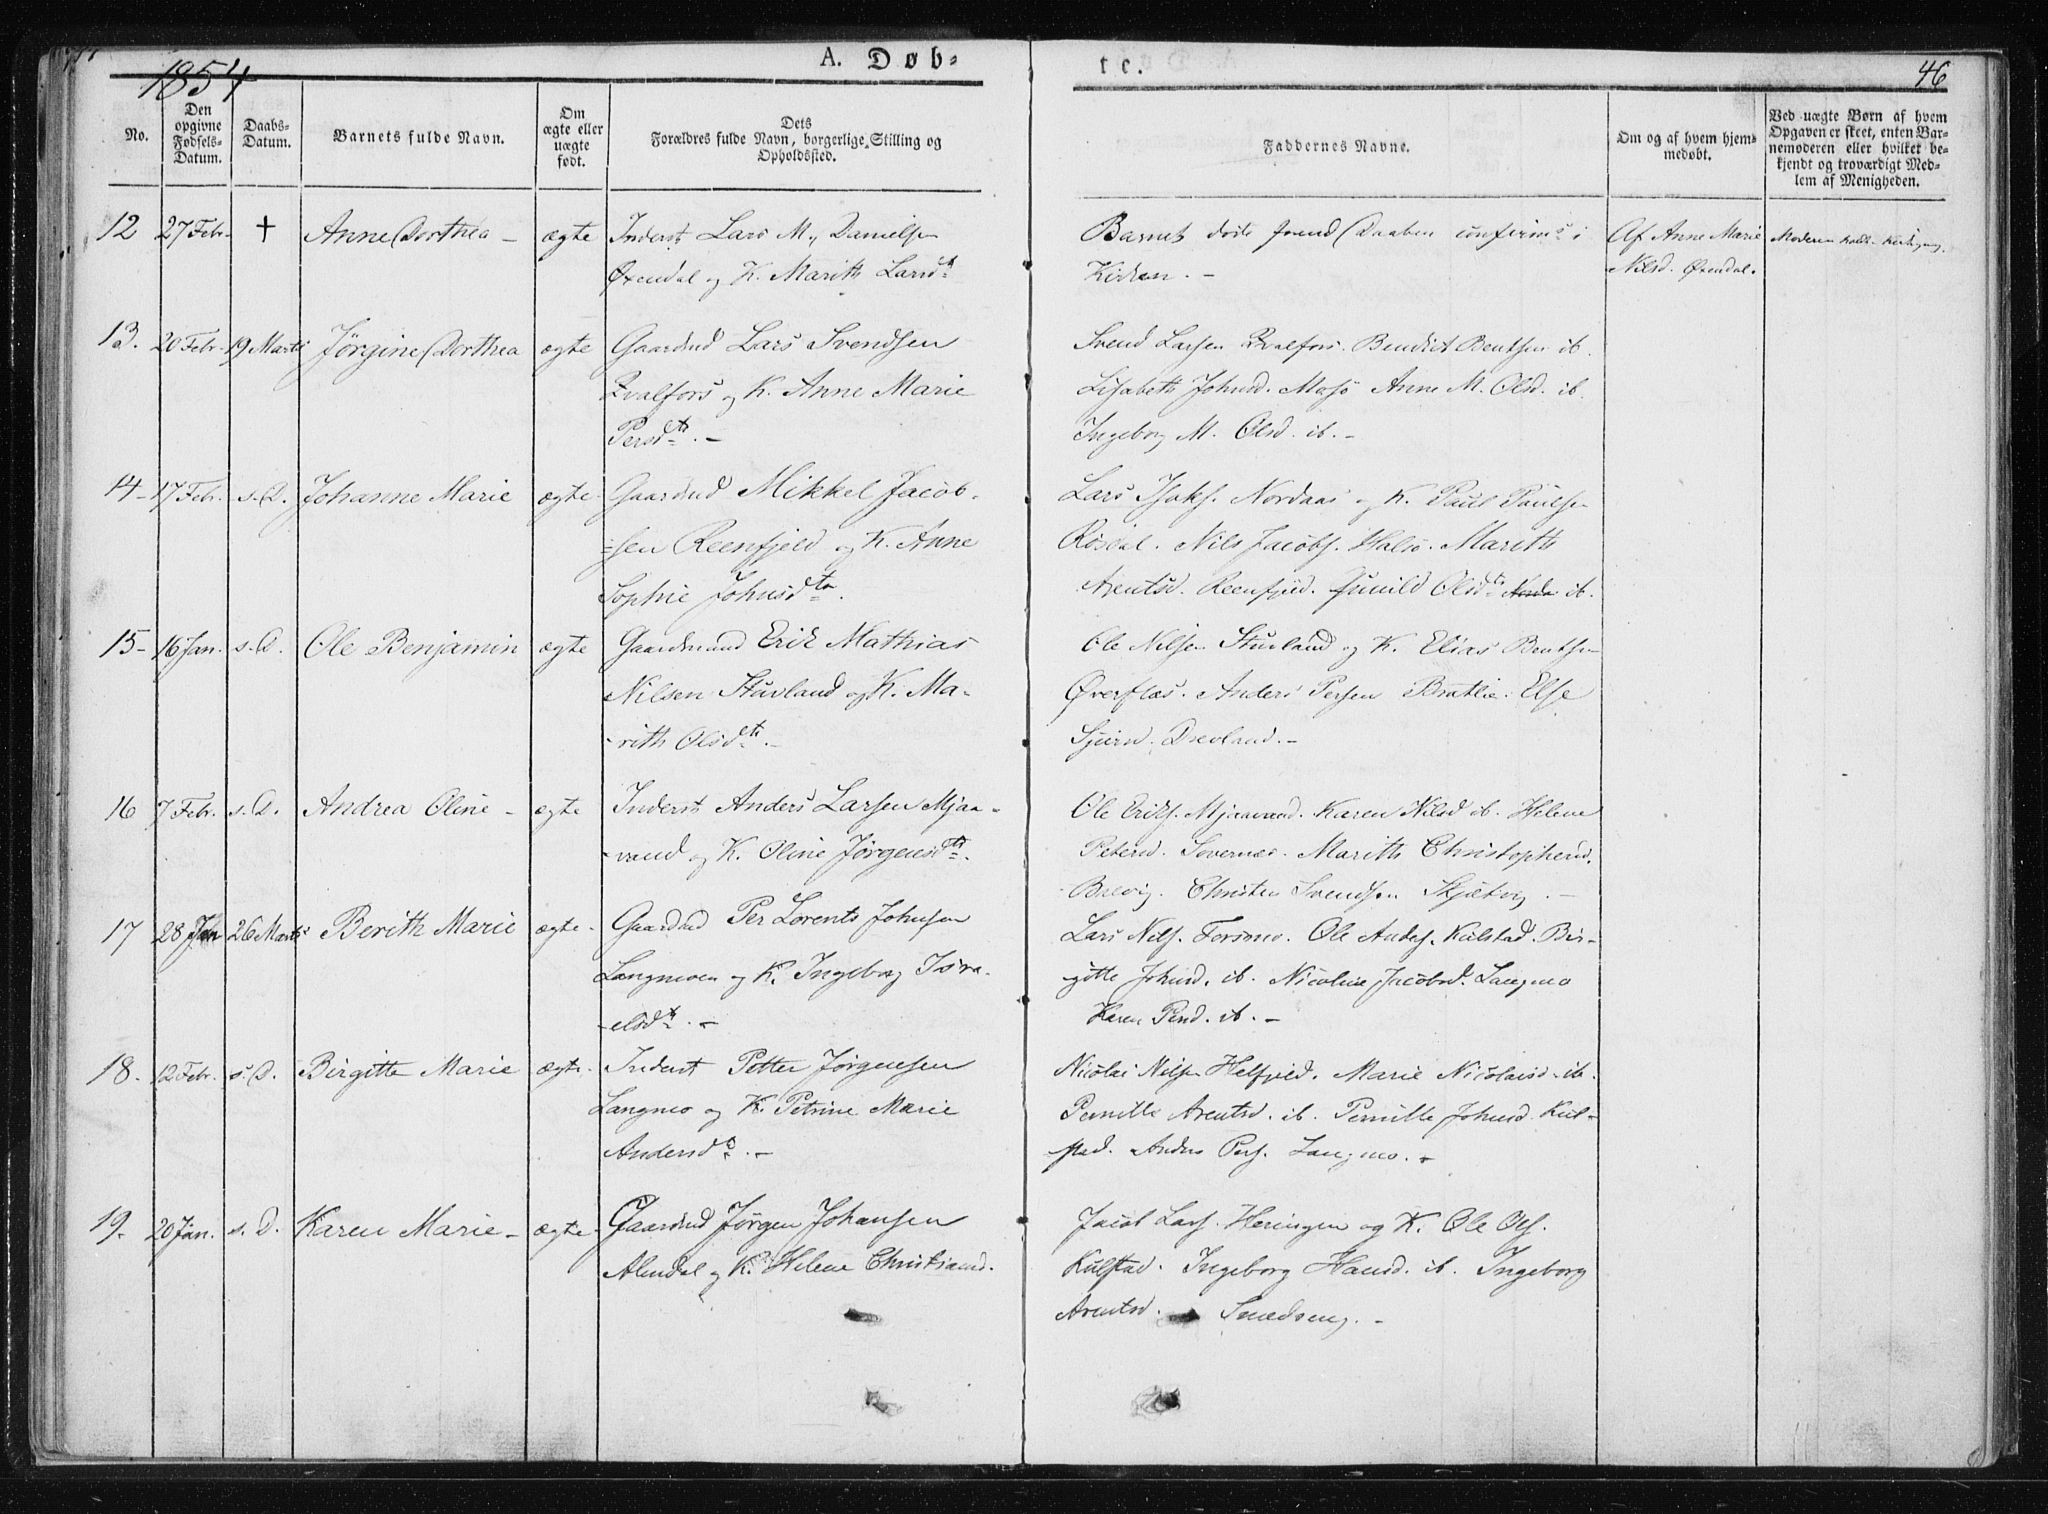 1854
A. Døb-
te.
46
No.
Den opgivne Fødsels-Datum.
Daabs-Datum.
Barnets fulde Navn.
Om ægte eller uægte født.
Dets Forældres fulde Navn, borgerlige Stilling og Opholdssted.
Faddernes Navne.
Om og af hvem hjemmedøbt.
Ved uægte Børn af hvem Opgaven er skeet, enten Barnemoderen eller hvilket bekjendt og troværdigt Medlem af Menigheden.
12 27 Febr. † Anne Dorthea - ægte Inderst Lars M. Danielsen
Øxendal og K. Marith Larsd.
Barnet døde forend Daaben i
Kirken. -
Af Anne Marie
Nilsd. Øxendal.
Moderen
13. 20 Febr. 19 Marts Jørgine Dorthea ægte Gaardmd Lars Svendsen
Kvalfors og K. Anne Marie
Persdtr. -
Svend Larsen Kvalfors. Bendict Bentsen ib.
Lisabeth Johnsd. Mosjø Anne M. Olsd. ib.
Ingeborg M. Olsd. ib. -
14 - 17 Febr. s. D. Johanne Marie ægte - Gaardmd Mikkel Jacob-
-sen Reenfjeld og K. Anne
Sophie Johnsdtr.
Lars Isaks. Nordaas og K. Paul Paulsen
Rosdal. Nils Jacobs. Halsø. Marith
Arentsd. Reenfjeld. Gunild Olsdtr ib.
15 - 16 Jan. s. D. Ole Benjamin ægte Gaardmand Erik Mathias
Nilsen Stuvland og K. Ma-
-rith Olsdtr. -
Ole Nilsen Stuvland og K. Elias Bentsen
Øverflas. Anders Persen Bratlie. Else
Drevland. -
16 7 Febr. s. D. Andrea Oline - ægte Inderst Anders Larsen Mjaa-
-vand og K. Oline Jørgensdtr.
Ole Eriks. Mjaavand. Karen Nilsd ib. Helene
Petersd. Sovernæs. Marith Christophersd.
Brevig. Christen Svendsen. -
17 28 Jan 26 Marts Berith Marie ægte - Gaardmd Per Lorents Johnsen
Langmoen og K. Ingeborg Isra-
-elsdtr. -
Lars Nils. Forsmo. Ole Anders. Kulstad. Bir-
gitte Johnsd. ib. Nicoline Jacobsd. Langmo
Karen Persd. ib. -
18. 12 Febr. s. D. Birgitte Marie ægte - Inderst Petter Jørgensen
Langmo og K. Petrine Marie
Andersd. -
Nicolai Nilsen Helfjeld. Marie Nicolaisd. ib.
Pernille Arentsd. ib. Pernille Johnsd. Kul-
stad. Anders Pers. Langmo. -
19. 20 Jan. s. D. Karen Marie - ægte - Gaardmd Jørgen Johansen
Alendal og K. Helene Christiansd.
Jacob Lars. Heringen og K. Ole Ols.
Kulstad. Ingeborg Hansd. ib. Ingeborg
Arentsd. Smedseng. -